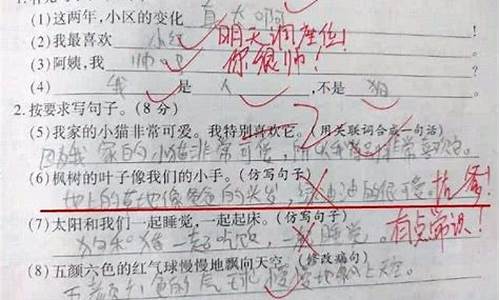 (1)这两年,小区的变化 真大啊
(2)我最喜欢 小红 明天调座位!
(3)阿姨,我 帅吧 你很帅!
(4) 我 是 人 ,不是 狗
2.按要求写句子。(8 分)
(5)我家的小猫非常可爱。我特别喜欢它。(用关联词合成一句话)
因为我家的小猫非常可爱,所以我 非常喜欢它。
(6)枫树的叶子像我们的小手。(仿写句子)
地上的草地像爸爸的头发,绿油油的很可爱。找爹!
(7)太阳和我们一起睡觉,一起起床。(仿写句子)
狗和猪一起吃饭,一起睡觉。 有点常识!
(8)五颜六色的红气球慢慢地飘向天空。(修改病句)
五颜六色的气球慢慢地飘上天空。